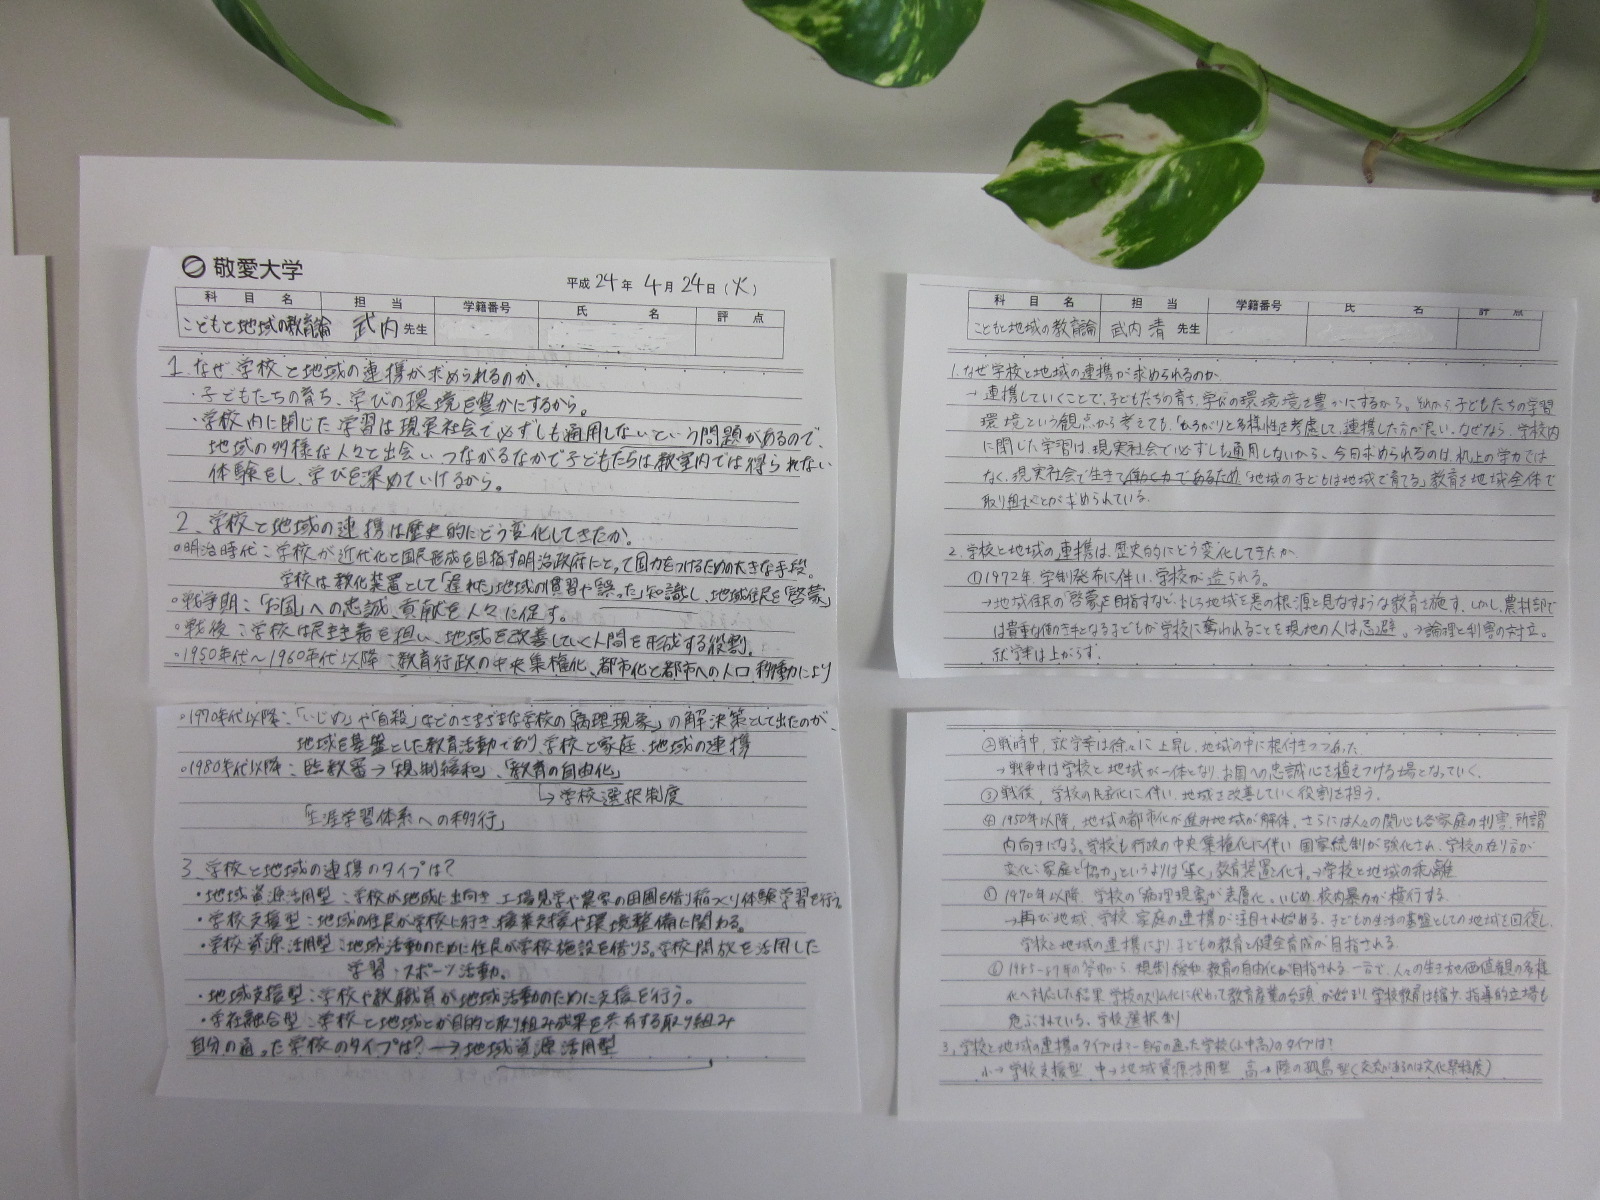 敬愛大学
平成24年 4月24日(火)
科目名 担当 学籍番号 氏名 評点
こどもと地域の教育論 武内 先生
1. なぜ学校と地域の連携が求められるのか。
・子どもたちの育ち、学びの環境を豊かにするから。
・学校内に閉じた学習は現実社会で必ずしも通用しないという問題があるので、
地域の多様な人々と出会い つながるなかで子どもたちは教室内では得られない
体験をし、学びを深めていけるから。
2. 学校と地域の連携は歴史的にどう変化してきたか。
・明治時代：学校が近代化と国民形成を目指す明治政府にとって国力をつけるための大きな手段。
学校は教化装置として「遅れた」地域の慣習や「誤った」知識し、地域住民を「啓蒙」
・戦争期：「お国」への忠誠、貢献を人々に促す。
・戦後：学校は民主主義を担い、地域を改善していく人間を形成する役割。
・1950年代～1960年代以降：教育行政の中央集権化、都市化と都市への人口移動により
・1970年代以降：「いじめ」や「自殺」などのさまざまな学校の「病理現象」の解決策として出たのが、
地域を基盤とした教育活動であり、学校と家庭、地域の連携
・1980年代以降：臨教審→「規制緩和」、「教育の自由化」
↳学校選択制度
「生涯学習体系への移行」
3. 学校と地域の連携のタイプは?
・地域資源活用型：学校が地域に出向き、工場見学や農家の田園を借り稲づくり体験学習を行う。
・学校支援型：地域の住民が学校に行き、授業支援や環境整備に関わる。
・学校資源活用型：地域活動のために住民が学校施設を借りる。学校開放を活用した
学習・スポーツ活動。
・地域支援型：学校や教職員が地域活動のために支援を行う。
・学社融合型：学校と地域とが目的と取り組み成果を共有する取り組み
自分の通った学校のタイプは? → 地域資源活用型
科目名 担当 学籍番号 氏名 評点
こどもと地域の教育論 武内 清 先生
1. なぜ学校と地域の連携が求められるのか
→連携していくことで、子どもたちの育ち、学びの環境境を豊かにするから。それから、子どもたちの学習
環境という観点から考えても、「ひろがりと多様」性を考慮して、連携した方が良い。なぜなら、学校内
に閉じた学習は、現実社会で必ずしも通用しないから、今日求められるのは、机上の学力では
なく、現実社会で生きて働く力であるため「地域の子どもは地域で育てる」教育を地域全体で
取り組むことが求められている。
2. 学校と地域の連携は、歴史的にどう変化してきたか
①1972年、学制発布に伴い、学校が造られる。
→地域住民の「啓蒙」を目指すなど、むしろ地域を悪の根源と見なすような教育を施す。しかし、農村部で
は貴重な働き手となる子どもが学校に奪われることを現地の人は忌避。→論理と利害の対立。
就学率は上がらず。
②戦時中、就学率は徐々に上昇し、地域の中に根付きつつあった
→戦争中は学校と地域が一体となり、お国への忠誠心を植えつける場となっていく。
③戦後、学校の民主化に伴い、地域を改善していく役割を担う。
④1950年以降、地域の都市化が進み地域が解体、さらには人々の関心も各家庭の利害、所謂
内向きになる。学校も行政の中央集権化に伴い 国家統制が強化され、学校の在り方が
変化：家庭と「協力」というよりは「導く」教育装置と化す。→学校と地域の乖離
⑤1970年以降、学校の「病理現象」が表層化。いじめ、校内暴力が横行する。
→再び地域、学校、家庭の連携が注目され始める。子どもの生活の基盤としての地域を回復し、
学校と地域の連携により、子どもの教育と健全育成が目指される。
⑥1985-87年の答申から、規制緩和、教育の自由化が目指される。一方で、人々の生き方や価値観の多様
化へ対応した結果、学校のスリム化に代わって教育産業の台頭 が始まり、学校教育は縮少、指導的立場も
危ぶまれている。学校選択制
3. 学校と地域の連携のタイプは?～自分の通った学校(小中高)のタイプは?
小→学校支援型 中→地域資源活用型 高→陸の孤島型(交流があるのは文化祭程度)